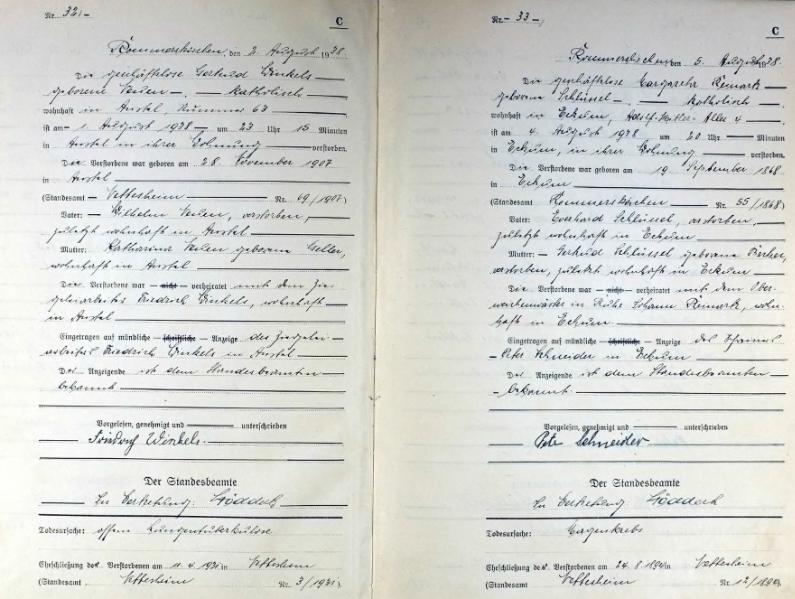 Nr. 32.
C
Rommerskirchen, den 2. August 1938.
Die geschäftslose Gertrud Winkels
geborene — katholisch
wohnhaft in Anstel, Nummer 63
ist am 1. August 1938 um 23 Uhr 15 Minuten
in Anstel in ihrer Wohnung verstorben.
Die Verstorbene war geboren am 28. November 1907
in Anstel
(Standesamt Nettesheim Nr. 69/1907)
Vater: Wilhelm, verstorben,
zuletzt wohnhaft in Anstel
Mutter: Katharina geborene
wohnhaft in Anstel
Die Verstorbene war — nicht — verheiratet mit dem Zie-
geleiarbeiter Friedrich Winkels, wohnhaft
in Anstel
Eingetragen auf mündliche — schriftliche — Anzeige des Ziegelei-
arbeiters Friedrich Winkels in Anstel
Der Anzeigende ist dem Standesbeamten
bekannt
Vorgelesen, genehmigt und unterschrieben
Friedrich Winkels.
Der Standesbeamte
In Vertretung: Gödderz
Todesursache: offene Lungentuberkulose
Eheschließung der Verstorbenen am 11.4.1931 in Nettesheim
(Standesamt Nettesheim Nr. 3/1931)
Nr. 33
C
Rommerskirchen, den 5. August 1938.
Die geschäftslose Margareta Remark
geborene Schlüssel — katholisch
wohnhaft in Eckum, Adolf-Hitler-Allee 4
ist am 4. August 1938 um 20 Uhr — Minuten
in Eckum, in ihrer Wohnung verstorben.
Die Verstorbene war geboren am 19. September 1868
in Eckum
(Standesamt Rommerskirchen Nr. 55/1868)
Vater: Everhard Schlüssel, verstorben,
zuletzt wohnhaft in Eckum
Mutter: Gertrud Schlüssel geborene
verstorben, zuletzt wohnhaft in Eckum
Die Verstorbene war — nicht — verheiratet mit dem Ober-
weichenwärter in Ruhe Johann Remark, wohn-
haft in Eckum
Eingetragen auf mündliche — schriftliche — Anzeige des
Peter Schneider in Eckum
Der Anzeigende ist dem Standesbeamten
bekannt.
Vorgelesen, genehmigt und unterschrieben
Peter Schneider
Der Standesbeamte
In Vertretung Gödderz
Todesursache: Magenkrebs
Eheschließung der Verstorbenen am 24.8. in Nettesheim
(Standesamt Nettesheim Nr. 12/